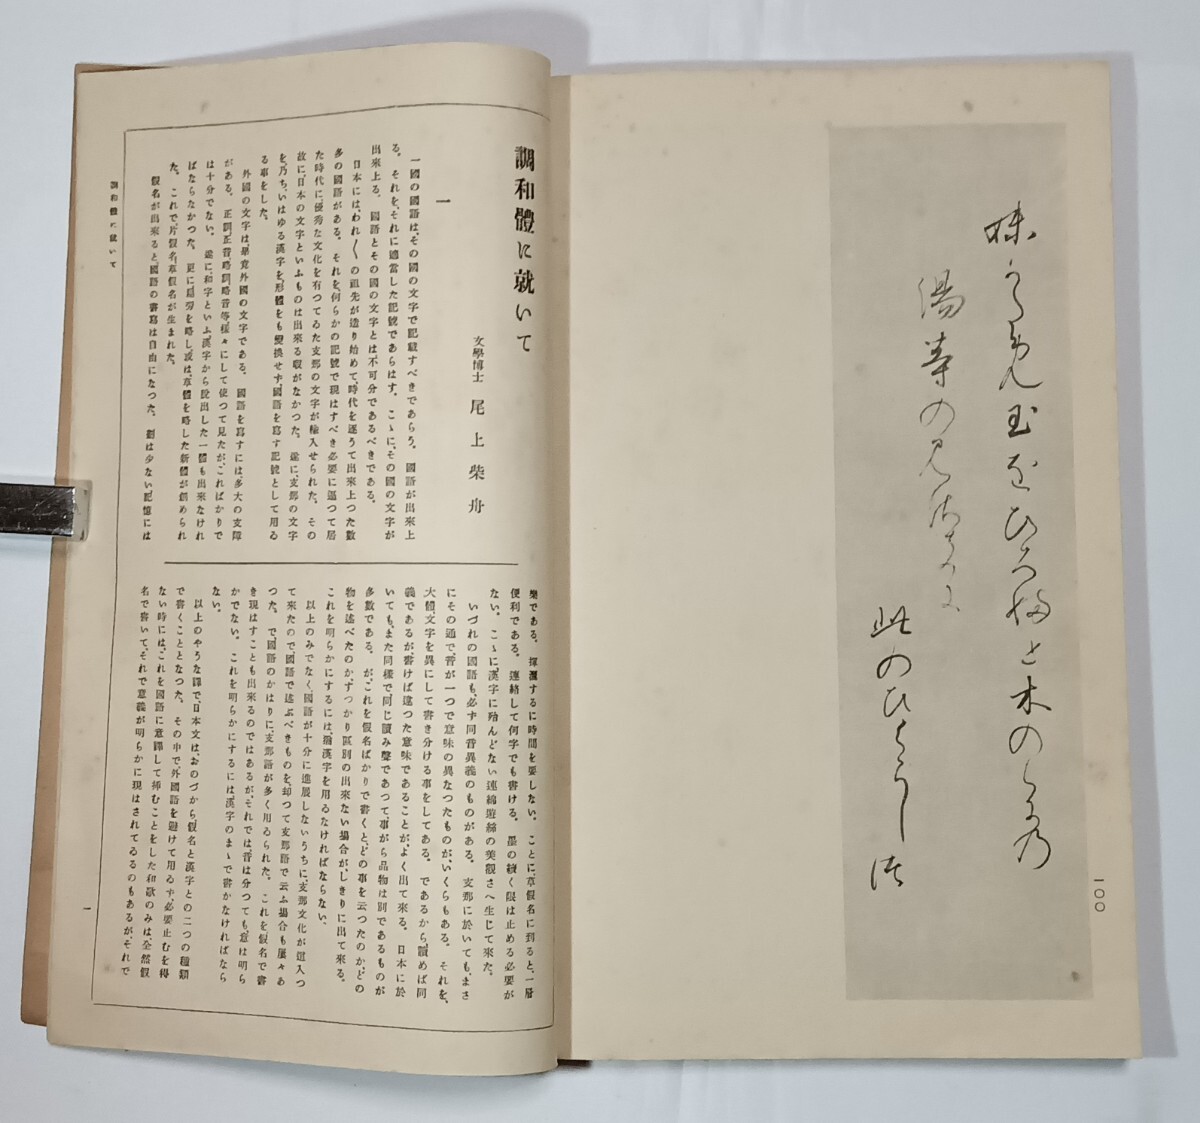 妹
玉をひろ婦と木のくに乃
湯等の見佐きに
此のひくらし
一〇〇
調和體に就いて
一
文學博士 尾上柴舟
一國の國語は、その國の文字で記載すべきであらう。國語が出來上
る。それを、それに適當した記號であらはす。こゝに、その國の文字が
出來上る。國語とその國の文字とは不可分であるべきである。
日本には、われ〳〵の祖先が造り始めて、時代を逐うて出來上つた數
多の國語がある。それを、何らかの記號で現はすべき必要に逼つて居
た時代に、優秀な文化を有つてゐた支那の文字が輸入せられた。その
故に、日本の文字といふものは出來る暇がなかつた。遂に、支那の文字
を、乃ち、いはゆる漢字を、形體をも變換せず、國語を寫す記號として用ゐ
る事をした。
外國の文字は、畢竟外國の文字である。國語を寫すには、多大の支障
がある。正訓、正音、略訓、略音等、樣々にして使つて見たが、こればかりで
は十分でない。遂に、和字といふ、漢字から脫出した一體も出來なけれ
ばならなかつた。更に、扁旁を略し、或は、草體を略した新體が創められ
た。これで、片假名、草假名が生まれた。
假名が出來ると、國語の書寫は自由になつた。劃は少ない、記憶には
樂である。揮灑するに時間を要しない。ことに、草假名に到ると、一層
便利である。連絡して何字でも書ける。墨の續く限は止める必要が
ない。こゝに、漢字に殆んどない連綿遊絲の美觀さへ生じて來た。
いづれの國語も、必ず同音異義のものがある。支那に於いても、まさ
にその通で、音が一つで意味の異なつたものが、いくらもある。それを、
大體、文字を異にして書き分ける事をしてある。であるから、讀めば同
義であるが、書けば違つた意味であることが、よく出て來る。日本に於
いても、また同樣で、同じ讀み聲であつて、事がら品物は別であるものが
多數である。が、これを假名ばかりで書くと、どの事を云つたのか、どの
物を述べたのか、すつかり區別の出來ない場合が、しきりに出て來る。
これを明らかにするには、猶漢字を用ゐなければならない。
以上のみでなく、國語が十分に進展しないうちに、支那文化が這入つ
て來たので、國語で述ぶべきものを、却つて支那語で云ふ場合も屢々あ
つた。で、國語のかはりに、支那語が多く用ゐられた。これを假名で書
き現はすことも出來るのではあるが、それでは、音は分つても、意は明ら
かでない。これを明らかにするには、漢字のまゝで書かなければなら
ない。
以上のやうな譯で、日本文は、おのづから、假名と漢字との二つの種類
で書くこととなつた。その中で、外國語を避けて用ゐや、必要止むを得
ない時には、これを國語に意譯して挿むことをした和歌のみは、全然假
名で書いて、それで意義が明らかに現はされてゐるのもあるが、それで
調和體に就いて
一